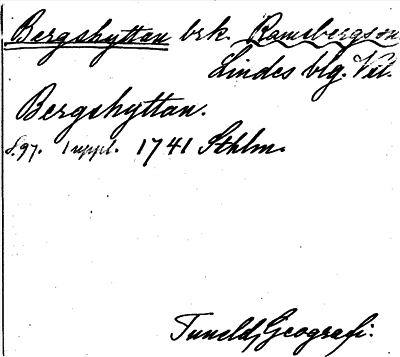 Bergshyttan brk. Ramsbergs sn
Lindes blg. Vstl.
Bergshyttan.
S. 97. 1 uppl. 1741 Sthlm.
Tunelds Geografi.